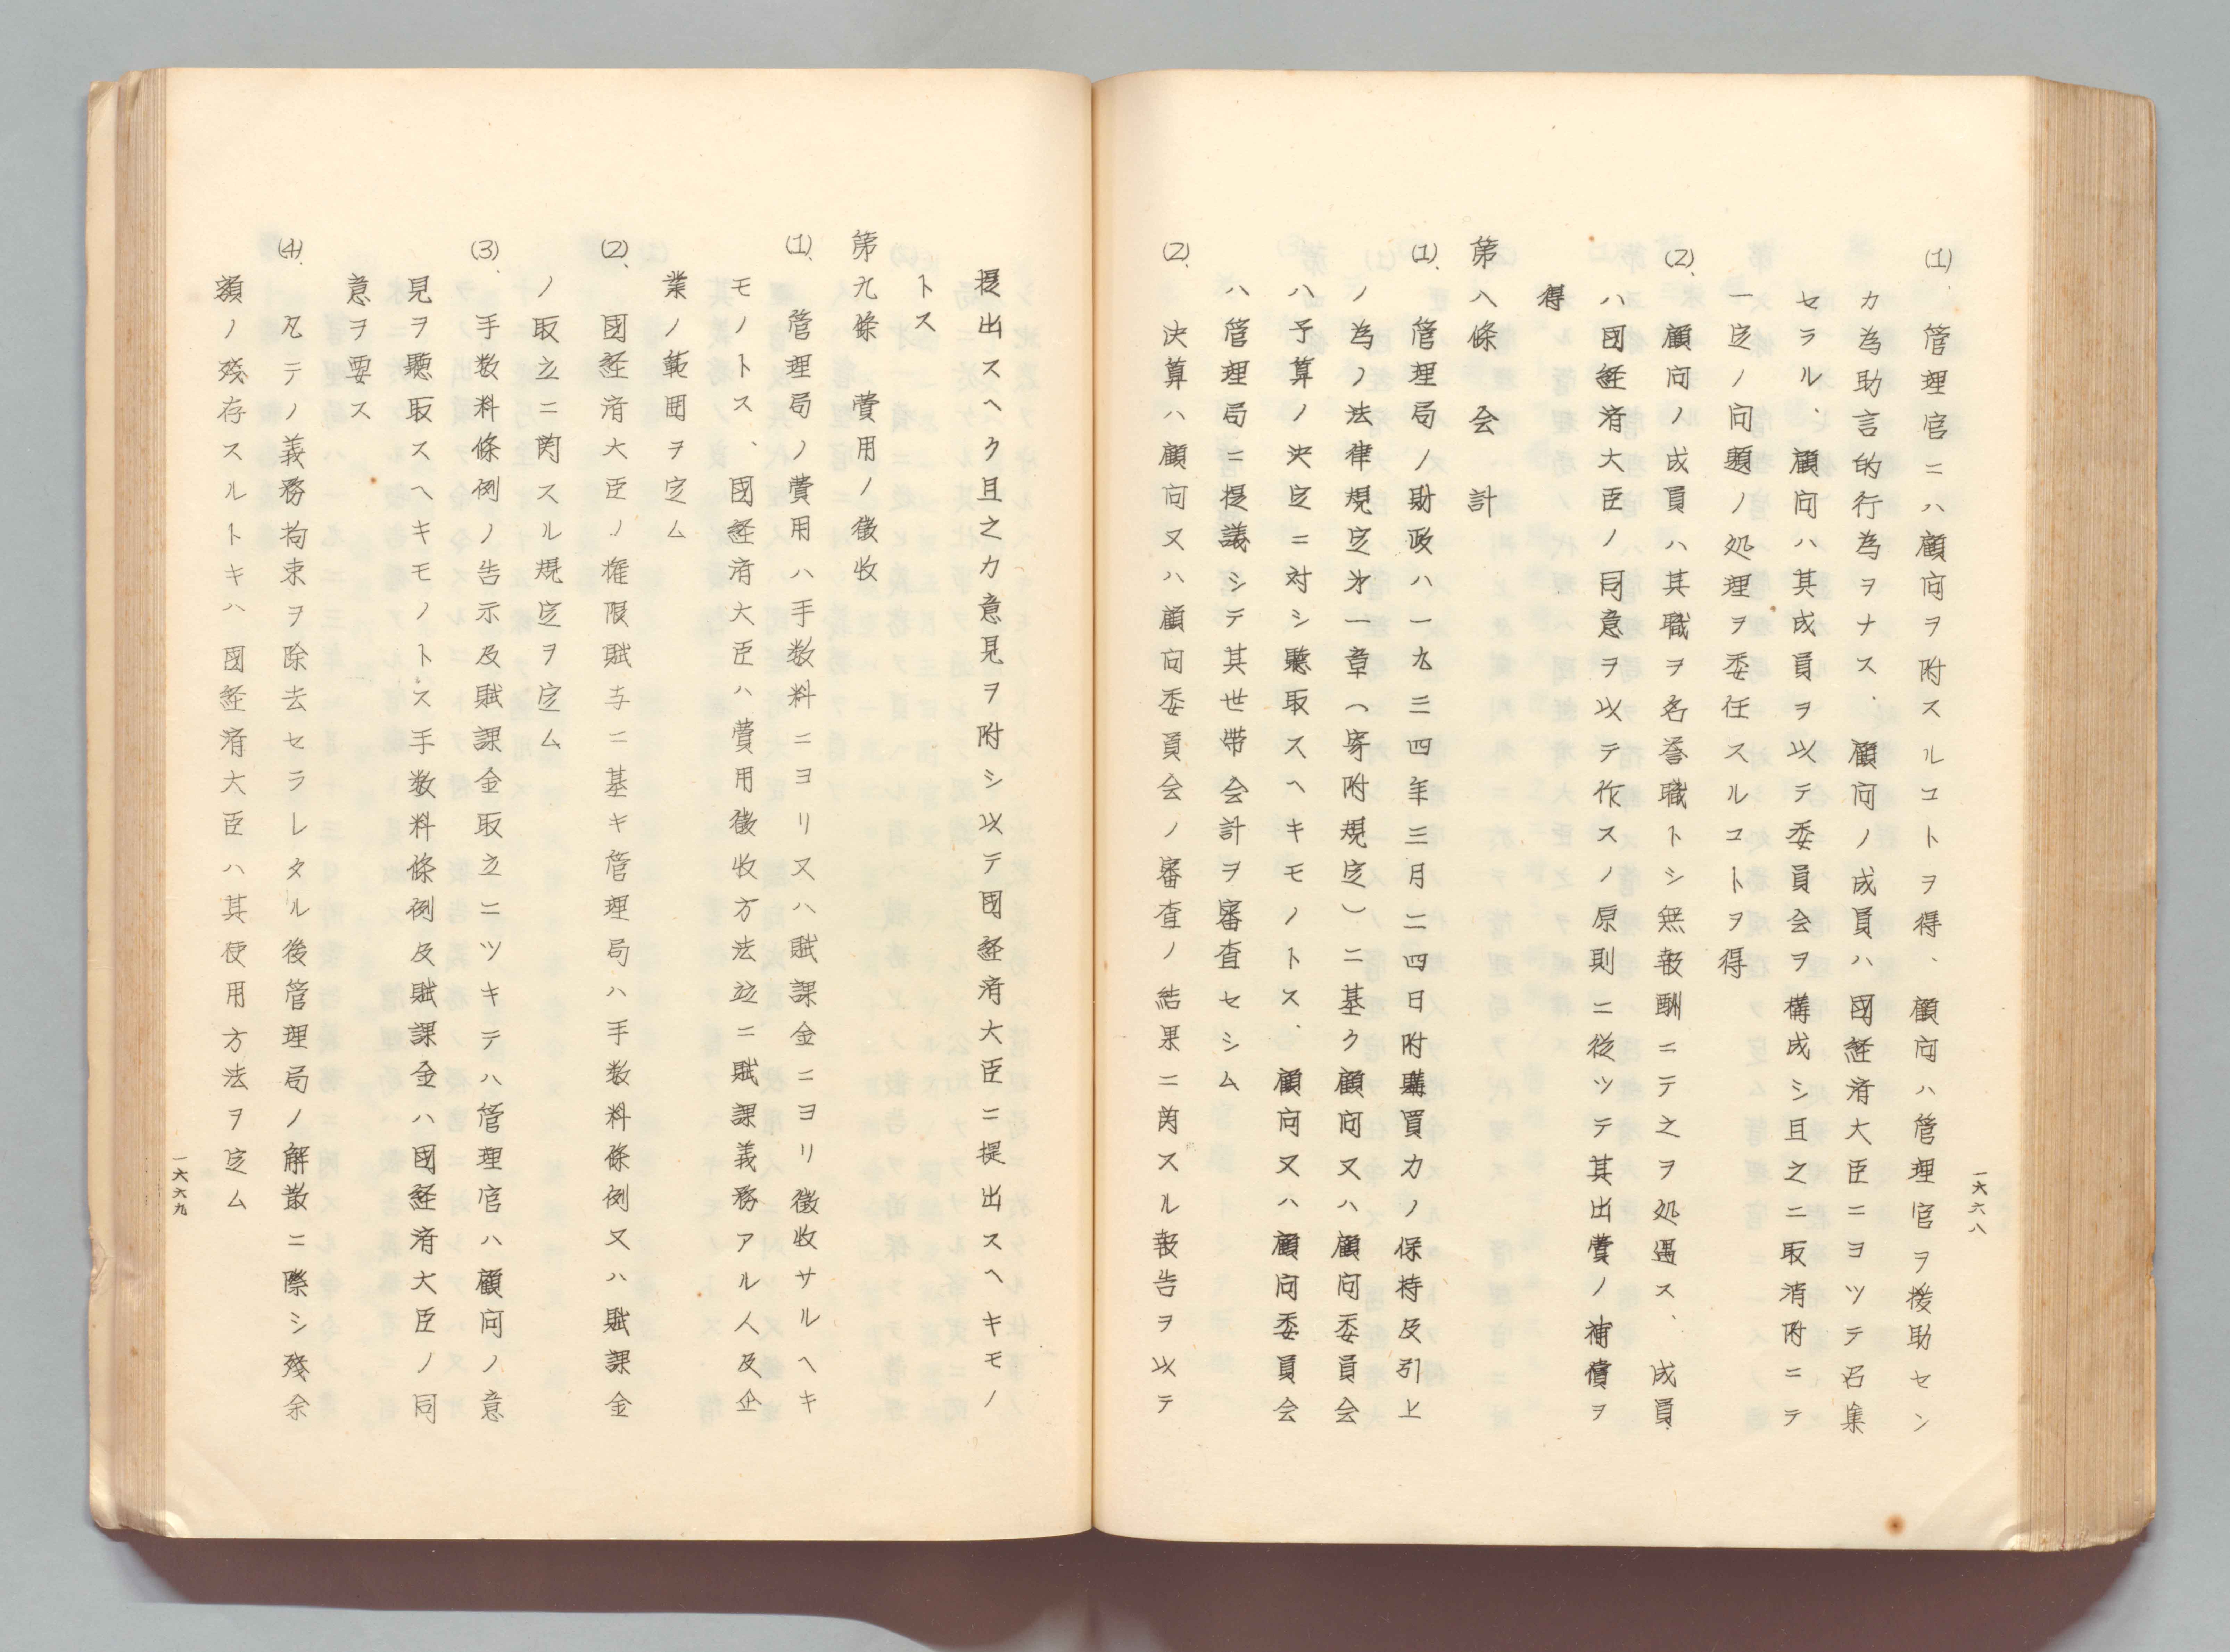 一六六八
(1)、管理官ニハ顧问ヲ附スルコトヲ得、顧问ハ管理官ヲ援助セン
カ為助言的行為ヲナス、顧问ノ成員ハ國経済大臣ニヨツテ召集
セラル、顧问ハ其成員ヲ以テ委員会ヲ構成シ且之ニ取消附ニテ
一定ノ问題ノ処理ヲ委任スルコトヲ得
(2)、顧问ノ成員ハ其職ヲ名誉職トシ無報酬ニテ之ヲ処遇ス、成員
ハ國経済大臣ノ同意ヲ以テ作スノ原則ニ従ツテ其出費ノ補償ヲ
得
第八條 会計
(1)、管理局ノ財政ハ一九三四年三月二四日附購買力ノ保持及引上
ノ為ノ法律規定才一章(寄附規定)ニ基ク顧问又ハ顧问委員会
ハ予算ノ決定ニ対シ聽取スヘキモノトス、顧问又ハ顧问委員会
ハ管理局ニ提議シテ其世帯会計ヲ審査セシム
(2)、決算ハ顧问又ハ顧问委員会ノ審査ノ結果ニ関スル報告ヲ以テ
提出スヘク且之カ意見ヲ附シ以テ國経済大臣ニ提出スヘキモノ
トス
第九條 費用ノ徴收
(1)、管理局ノ費用ハ手数料ニヨリ又ハ賦課金ニヨリ徴收サルヘキ
モノトス、國経済大臣ハ費用徴收方法竝ニ賦課義務アル人及企
業ノ範囲ヲ定ム
(2)、國経済大臣ノ権限賦与ニ基キ管理局ハ手数料條例又ハ賦課金
ノ取立ニ関スル規定ヲ定ム
(3)、手数料條例ノ告示及賦課金取立ニツキテハ管理官ハ顧问ノ意
見ヲ聽取スヘキモノトス手数料條例及賦課金ハ國経済大臣ノ同
意ヲ要ス
(4)、凡テノ義務拘束ヲ除去セラレタル後管理局ノ解散ニ際シ残余
額ノ残存スルトキハ國経済大臣ハ其使用方法ヲ定ム
一六六九